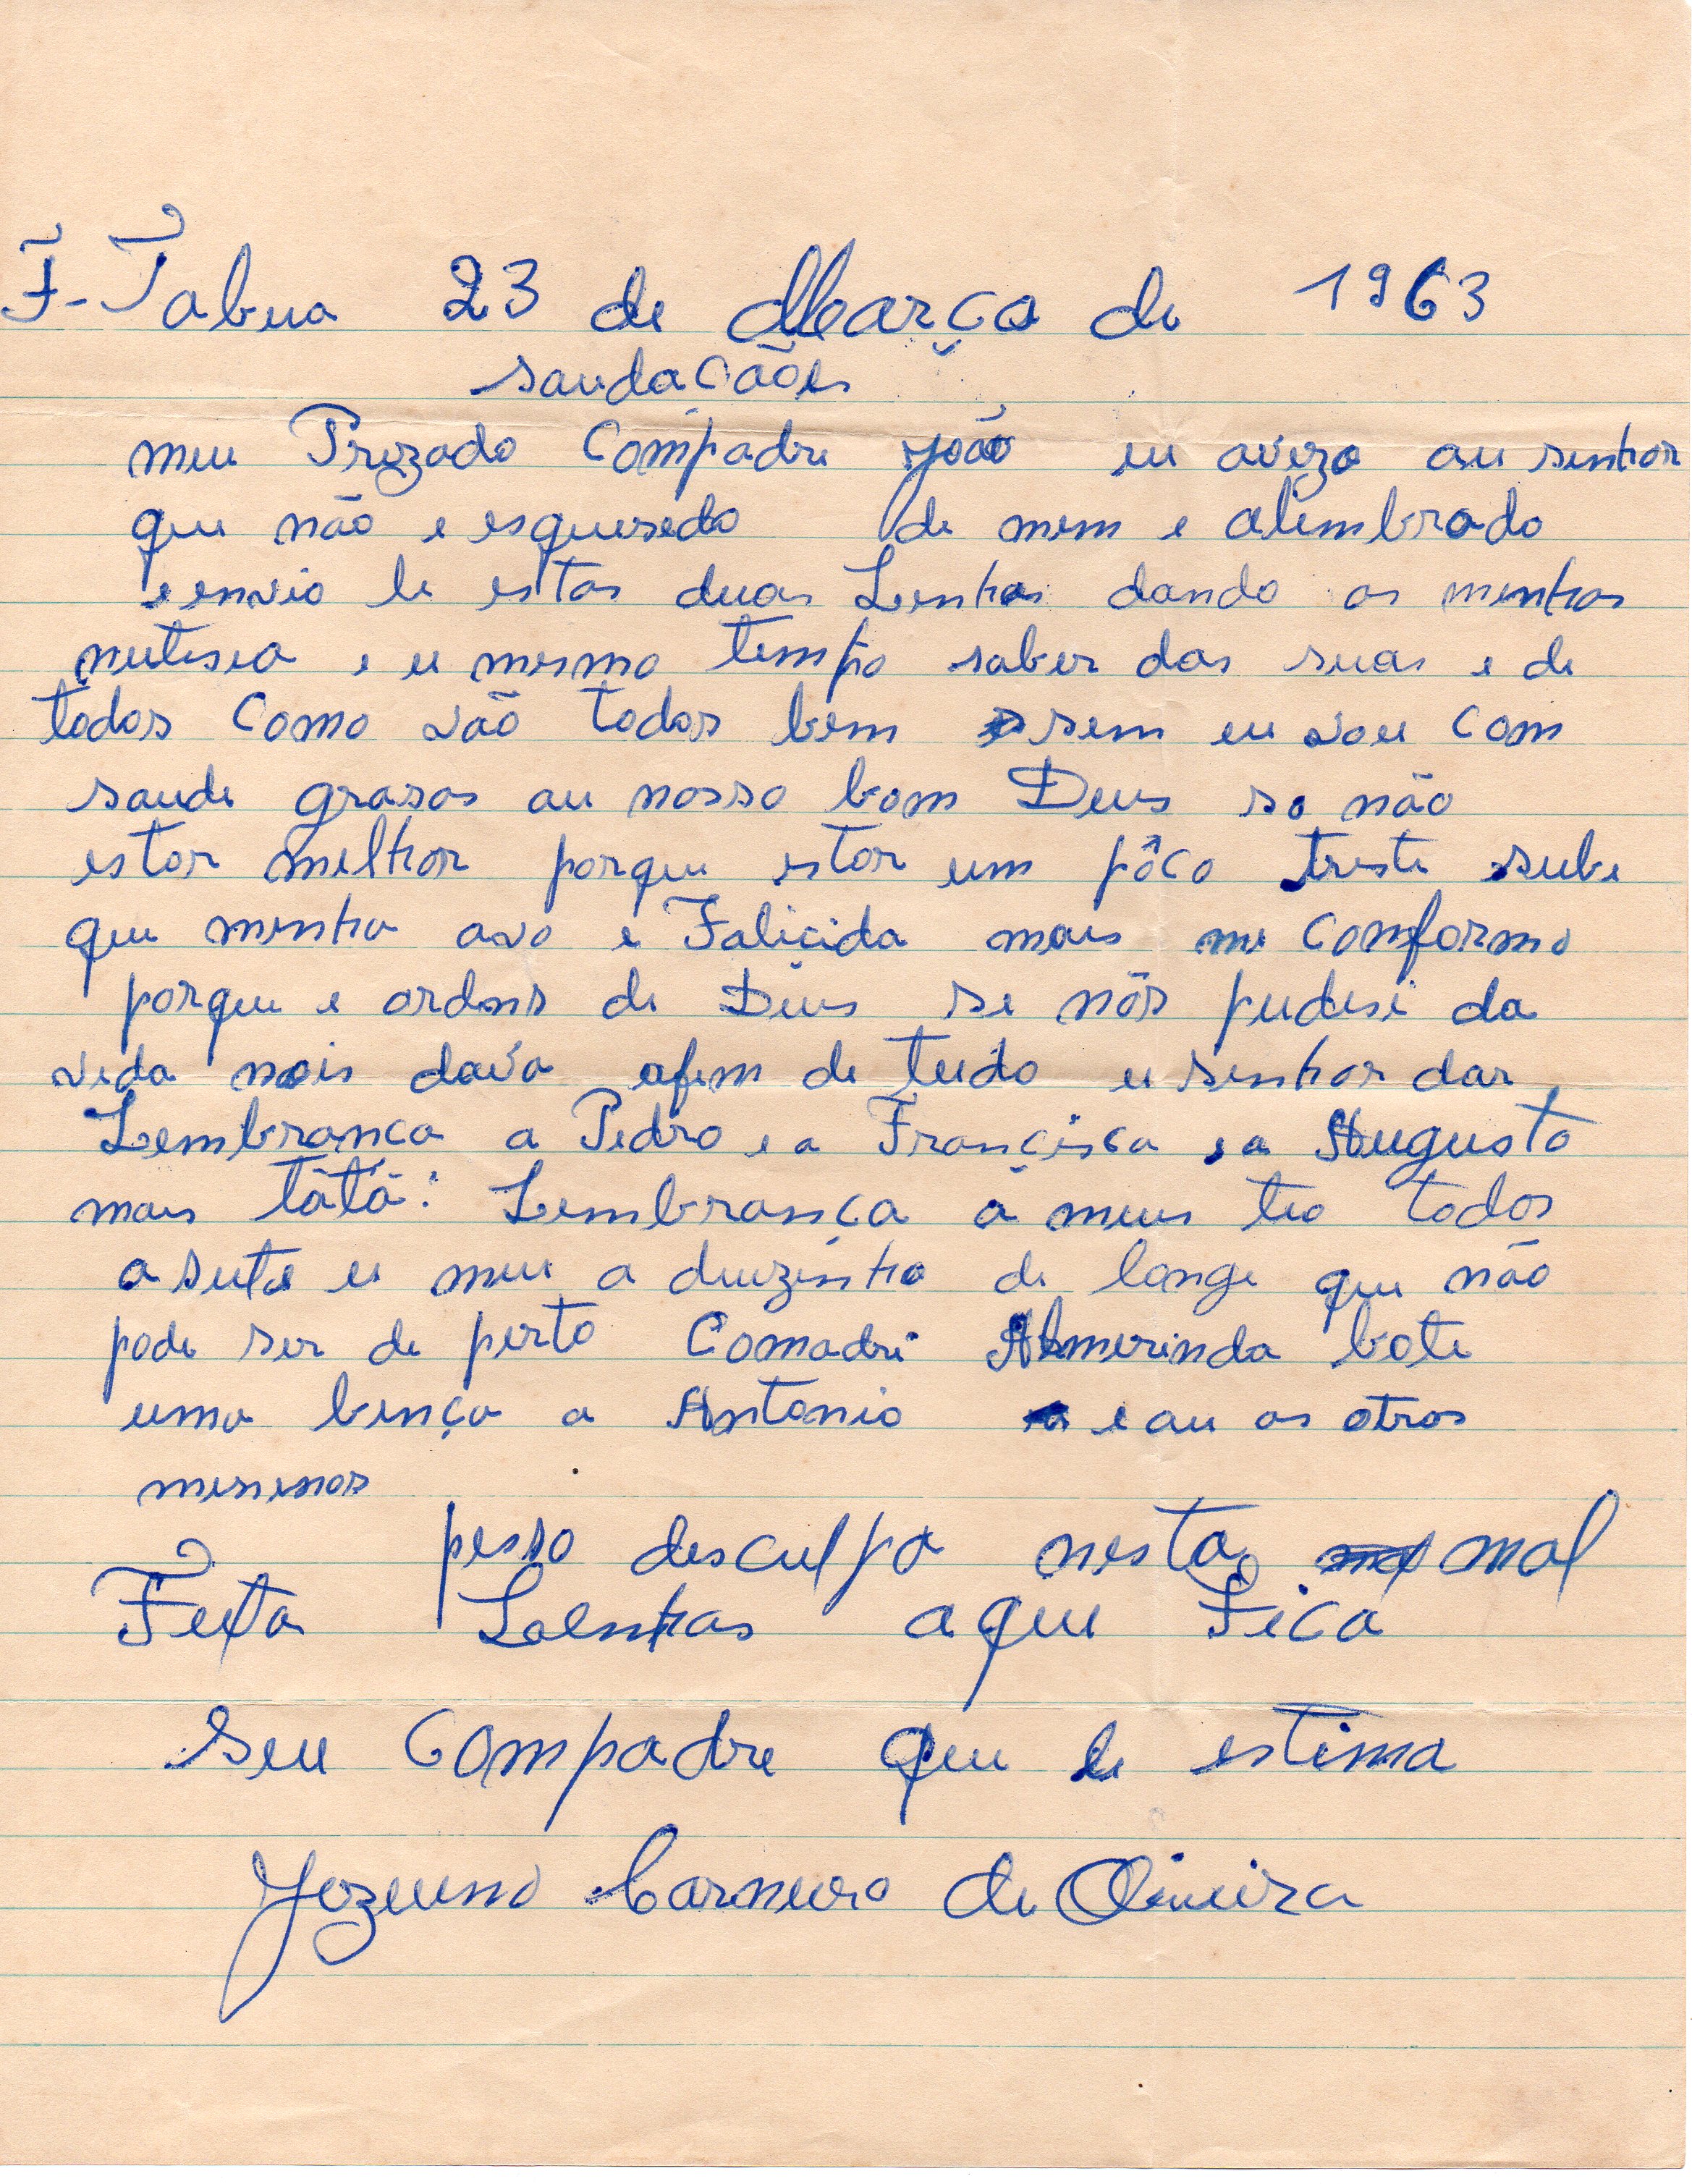 F-Tabua 23 de Março de 1963
saudaçãoes
meu Prezado Compadre João eu avizo au senhor
que não e esquesedo de mem e alembrado
e envio le estas duas Lenhas dando as menhas
nutisea e u mesmo tempo saber das suas e de
todos Como vão todos bem sem eu vou Com
saude grasas au nosso bom Deus so não
estor melhor porque estor um pôco treste sube
que menha avo e Falicida mais me Comformo
porque e ordens de Deus se nós pudese da
veda nois dava afem de tudo u senhor dar
Lembrança a Pedro e a Françisca e a Augusto
mais tátá: Lembrança a meus teo todos
asute u meu a deuzinho de longe que não
pode ser de perto Comadre Almerinda bote
uma bença a Antonio e au os otros
menenos
pesso desculpa nesta mal
Feta Lenhas aque Feca
seu Compadre que le estima
Jozeuno Carneuro de Oliveira